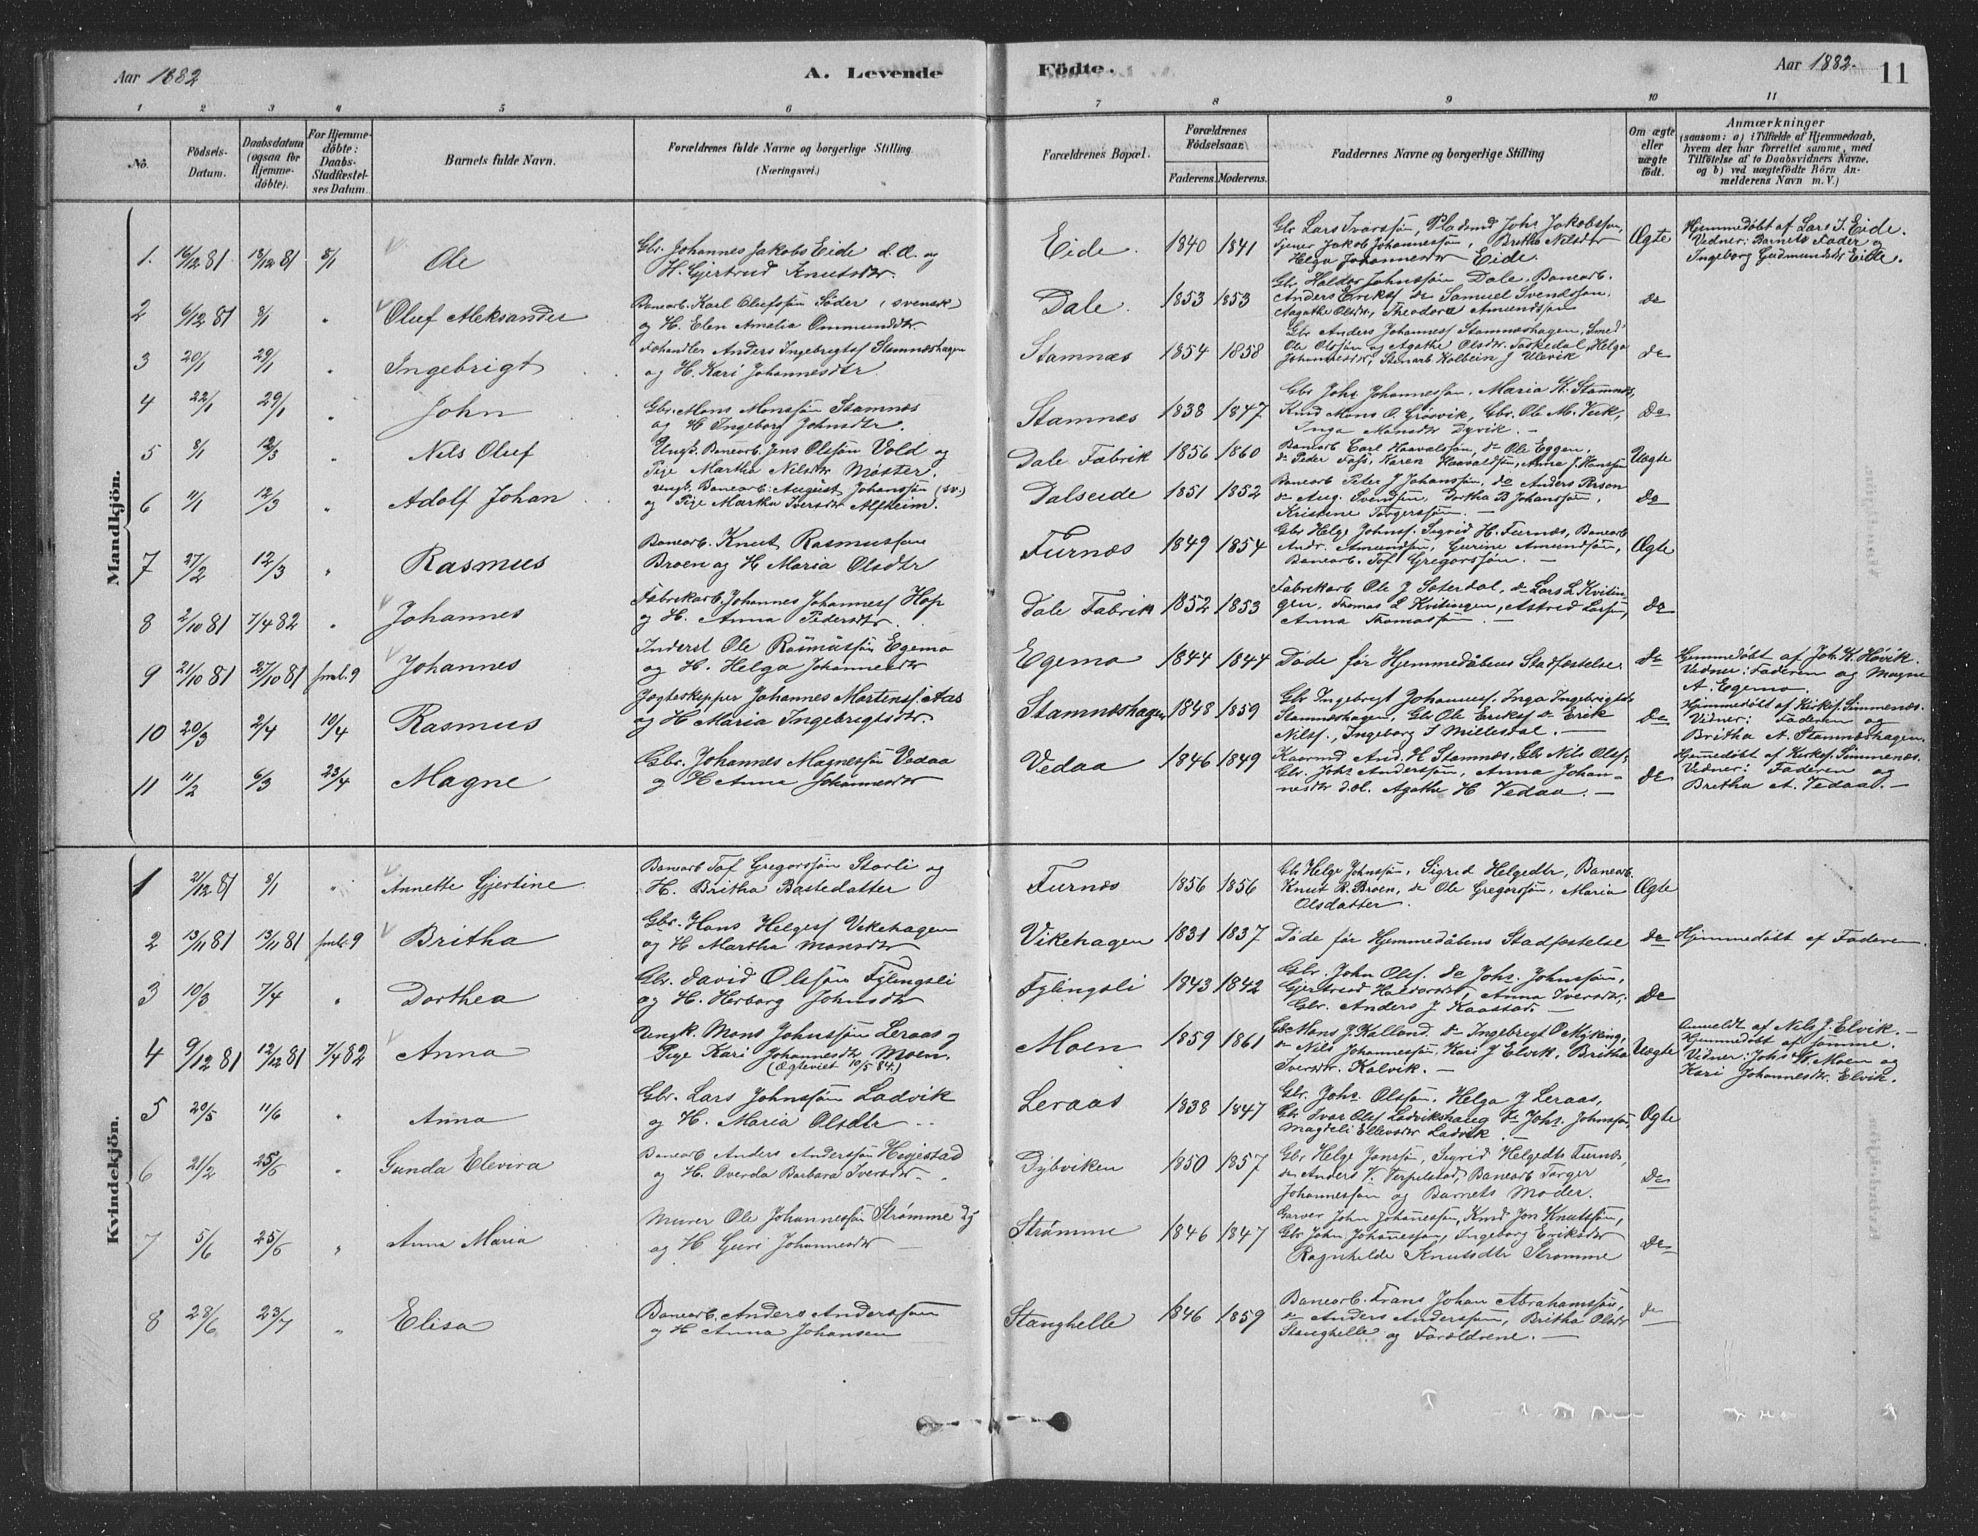 Aar 1882
A. Levende
Födte.
Aar 1882.
11
1 2 3 4 5 6 7 8 9 10 11
No.
Födsels-Datum.
Daabsdatum (ogsaa for Hjemme-döbte).
For Hjemme-döbte: Daabs-Stadfæstel-ses Datum.
Barnets fulde Navn.
Forældrenes fulde Navne og borgerlige Stilling (Næringsvei.)
Forældrenes Bopæl.
Forældrenes Födselsaar.
Faderens. Moderens.
Faddernes Navne og borgerlige Stilling
Om ægte eller uægte födt.
Anmærkninger
(saasom: a) i Tilfælde af Hjemmedaab, hvem der har forrettet samme, med Tilföielse af to Daabsvidners Navne. og b) ved uægtefödte Börn An-melderens Navn m. V.)
Mandkjön.
1. 16/12 81 18/12 81 8/1 Ole
Gbr. Johannes Jakobs Eide d. Æ. og
H. Gjertrud Knutsdtr.
Eide. 1840 1841
Gbr Lars Ivarssön, Pladsmd Johs Jakobssen,
Tjener Jakob Johannessön, Britha Nilsdtr
Helga Johannesdtr Eide.
Ægte
Hjemmedøbt af Lars I. Eide.
Vidner: Barnets Fader og
Ingeborg Gudmundsdtr Eide.
2 6/12 81 8/1 " Oluf Aleksander
Banearb. Karl Olufssön Söder (svensk)
og H. Elen Amalia Ommundsdtr.
Dale. 1853 1853
Gbr Haldor Johnssön Dale, Banearb.
Anders Eriks. do Samuel Svendssön,
Aagathe Olsdtr, Theodora Amundssön
do
3 20/1 29/1 " Ingebrigt
Føhandler Anders Ingebrigts Stamneshagen
og H. Kari Johannesdtr
Stamnæs 1854 1858
Gbr Anders Johanness Stamneshagen, Smed
Ole Olssön og Agathe Olsdtr. Helga
Johannesdtr, Banearb Kolbein J Ulevik
do
4 22/1 29/1 " John
Gbr. Mons Monssön Stamnæs
og H Ingeborg Johnsdtr.
Stamnæs 1838 1847
Gbr Johs Johannessön, Maria K. Stamnæs,
Kmd Mons O. Grøsvik, Gbr. Ole M. Veck,
Inga Monsdtr Dyvik. —
Do
5 8/1 12/3 " Nils Oluf
Ungk. Banearb. Jens Olssön Vold og
Pige Martha Nilsdtr Møster.
Dale Fabrik 1856 1860
Banearb Carl Haavalssön, do Ole Eggen,
do Peder Foss, Karen Haavaldssön, Anna J. Hanssön
Uægte
6 11/1 12/3 " Adolf Johan
Ungk. Banearb: August Johanssön (sv.)
og Pige Martha Iversdtr Alfheim.
Dalseide 1851 1852
Banearb Peter J Johanssön, do Anders Person
do Aug. Svendssön, B Johanssön,
Kristine Torgerssön. —
Do
7 27/2 12/3 " Rasmus
Banearb. Knut Rasmussen
Broen og H Maria Olsdtr
Furnæs 1849 1854
Gbr Helge Johnss. Sigrid H. Furnæs, Banearb
Andr. Amundssön, Gurine Amundssön,
Banearb. Tof Gregorssön. —
Ægte
8 2/10 81 7/4 82 " Johannes
Fabrikarb. Johannes Johanness Hop
og H. Anna Pedersdtr.
Dale Fabrik 1852 1853
Fabrikarb Ole J Soterdal, do Lars L Kvitin-
gen, Thomas L Kvitingen, Astrid Larssen,
Anna Thomassön. —
do
9 21/10 81 27/10 81 Johannes
Inderst Ole Rasmussön Egemo
og H. Helga Johannesdtr
Egemo 1844 1844
Døde før Hjemmedåbens Stadfæstelse.
do
Hjemmedøbt af Joh. K. Høvik.
Vidner: Faderen og Magne
A. Egemo.
10 20/3 2/4 10/4 Rasmus
Jægteskipper Johannes Martinss. Aas
og H Maria Ingebrigtsdtr
Stamneshagen 1848 1859
Gbr Ingebrigt Johanness. Inga Ingebrigtsdr
Stamneshagen, Gbr Ole Erikss do Erik
Nilss., Ingeborg S Millesdal. —
Do
Hjemmedøbt af Kirkes. Simmenæs.
Vidner: Faderen og
Britha A. Stamneshagen.
11 11/2 6/3 23/4 Magne
Gbr. Johannes Magnessön Vedaa
og H Anna Johannesdtr
Vedaa 1846 1849
Kaarmd And. H Stamnæs, Gbr Nils Olss,
Gbr. Johs Anderssön, Anna Johan-
nesdtr d.æ. Agathe H Vedaa. —
do
Hjemmedøbt af Kirkes. Simmenæs.
Vidner: Faderen og
Britha A. Vedaa. —
Kvindekjön.
1 2/12 81 8/1 " Annette Gjertine
Banearb Tof Gregorssön Storli og
H. Britha Bastedatter
Furnæs 1856 1856
Gbr Helge Johnssön, Sigrid Helgedtr, Banearb
Knut R. Broen, do Ole Gregorssön, Maria
Olsdatter.
Ægte
2 13/11 81 13/11 81 Britha
Gbr. Hans Helgess Vikehagen
og H Martha Monsdtr
Vikehagen 1831 1837
Døde før Hjemmedøbens Stadfæstelse
do
Hjemmedøbt af Faderen.
3 10/3 7/4 " Dorthea
Gbr. David Olssön Fylingsli
og H. Herborg Johnsdtr
Fylingsli 1843 1842
Gbr. John Olss. do Johs. Johnssön,
Gjertrud Haldorsdtr, Anna Iversdtr,
Gbr. Anders J Kaastad. —
Do
4 9/12 81 12/12 81 7/4 82 Anna
Ungk. Mons Johnssön Leraas og
Pige Kari Johannesdtr Moen.
(Ægteviet 10/5 84.)
Moen 1859 1861
Gbr Mons J. Kalland do Ingebrigt O Myking,
do Nils Johannessön, Kari J Elvik, Britha
Iversdtr. Kalvik. —
Uægte
Anmeldt af Nils J. Elvik. —
Hjemmedøbt af samme.
Vidner: Johs H. Moen og
Kari Johannesdtr. Elvik.
5 20/5 11/6 " Anna
Gbr. Lars Johnssön Ladvik
og H. Maria Olsdtr
Leraas 1838 1847
Gbr. Johs. Olssön. Helga J Leraas,
Gbr Ivar Olss Ladvikshaug do Johs. Johnssön,
Magdeli Ellevsdtr Ladvik. —
Ægte
6 21/2 25/6 " Gunda Elevira
Banearb Anders Anderssön Heiestad
og H. Overda Barbara Iversdtr
Dybviken 1850 1857
Gbr Helge Jonssön, Sigrid Helgedtr Furnæs,
do Anders V Verpelstad, Banearb Torger
Johannessön og Barnets Moder.
Do
7 5/6 25/6 " Anna Maria
Murer Ole Johannessön Strømme
og H Guri Johannesdtr
Strømme 1846 1847
Garver John Johannessön, Kmd Jon Knutssön,
Gbr John Johannessön, Ingeborg Eriksdtr
Ragnhilde Knutsdtr Strømme
Do
8 28/6 23/7 " Elisa
Banearb. Anders Anderssön
og H Anna Johansen
Stanghelle 1846 1859
Banearb. Frans Johan Abrahamssön,
do Anders Anderssön, Britha Olsdtr
Stanghelle og Forældrene. —
do